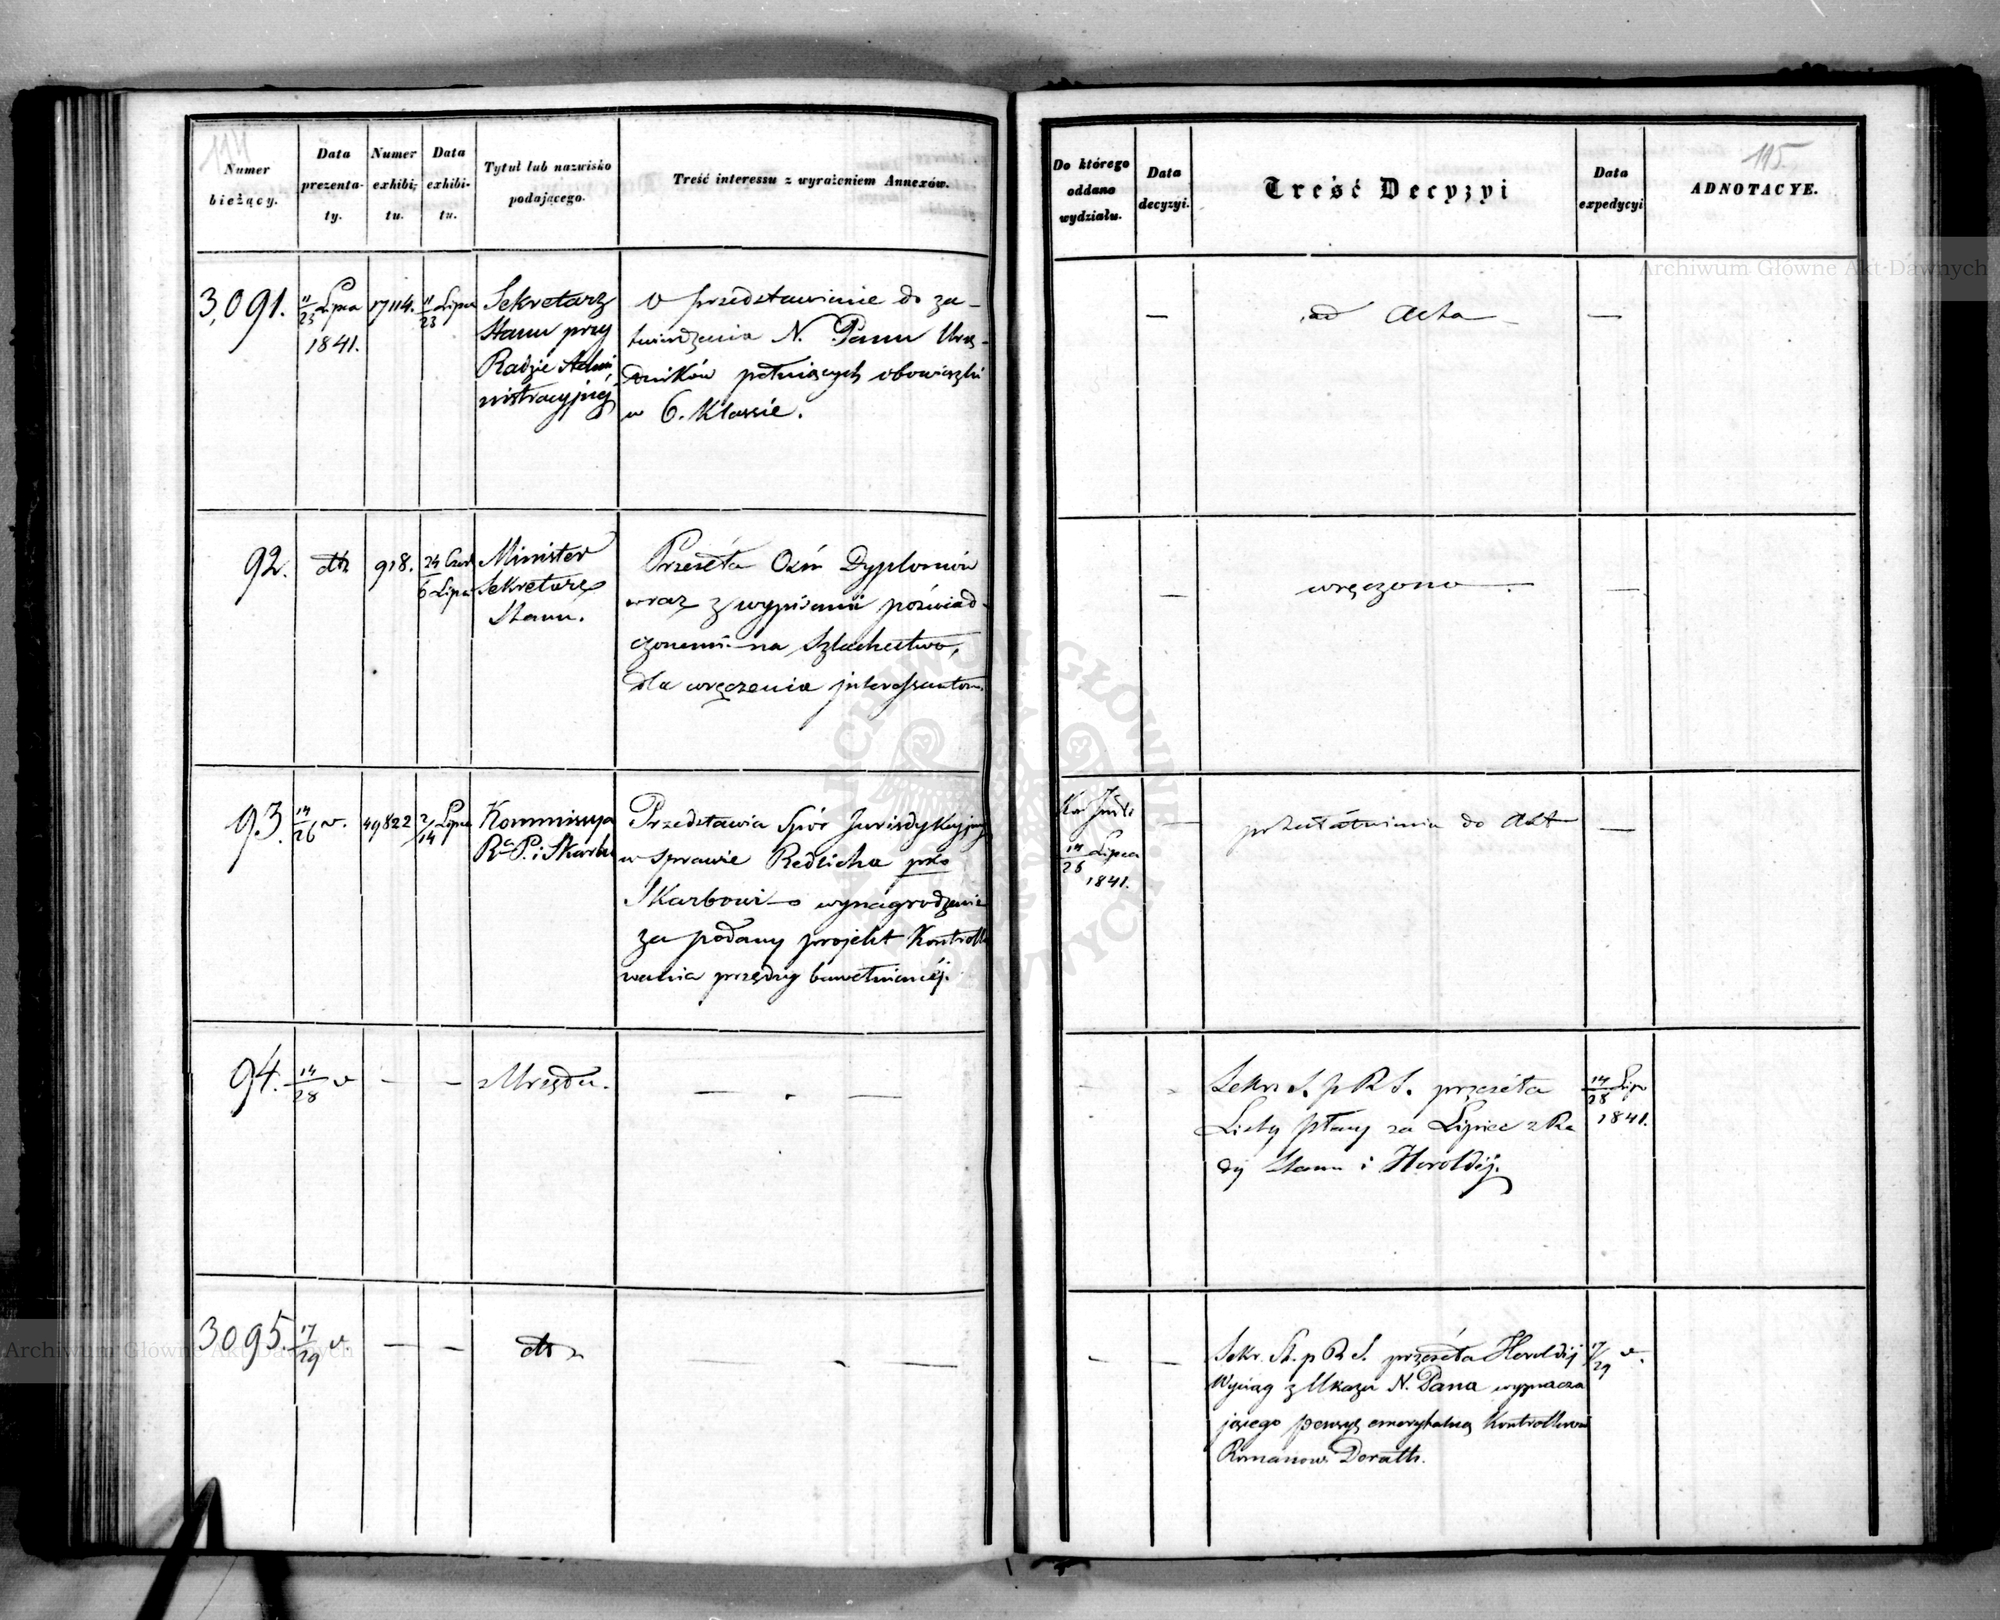 114
Numer bieżący.
Data prezentaty.
Numer exhibitu.
Data exhibitu.
Tytuł lub nazwisko podającego.
Treść interessu z wyrażeniem Annexów.
3,091.
11/23 Lipca
1841.
17114.
11/23 Lipca
Sekretarz
Stanu przy
Radzie Admi
nistracyjnéj
O przedstawienie do za-
twierdzenia N. Panu Urzę-
dników pełniących obowiązki
w 6. Klassie.
92.
dtto
918.
24 Czer
6 Lipca
Minister
Sekretarz
Stanu.
Przeséła Ośm Dyplomów
wraz z wypisami poświad-
czonemi na Szlachectwo,
dla wręczenia interessantom.
93.
14/26 v.
49822
2/14 Lipca
Kommissya
R. P. i Skarbu
Przedstawia Spór Jurisdykcyjny
w sprawie Redlicha pko
Skarbowi o wynagrodzenie
za podany projekt Kontroll
wania przędzy bawełnianéj.
94.
14/28 v
—
—
z Urzędu.
— . —
3095.
17/29 v.
—
—
dtto
— . —
115.
Do którego oddano wydziału.
Data decyzyi.
Treść Decyzyi
Data expedycyi
ADNOTACYE.
—
ad Acta
—
—
wręczono
—
14/26 Lipca
1841.
—
do Akt
—
Sekr. S. p R S. przeséła
Listy płacy za Lipiec z Ra
dy Stanu i Heroldij.
14/28 Lipc
1841.
Sekr. St. p R S. przeséła Heroldij
Wyciąg z Ukazu N. Pana wyznacza
jącego pensyę emerytalną Kontrollerowi
Romanow. Doratt.
17/29 v.
Archiwum Główne Akt Dawnych
Archiwum Główne Akt Dawnych
ARCHIWUM GŁÓWNE AKT DAWNYCH